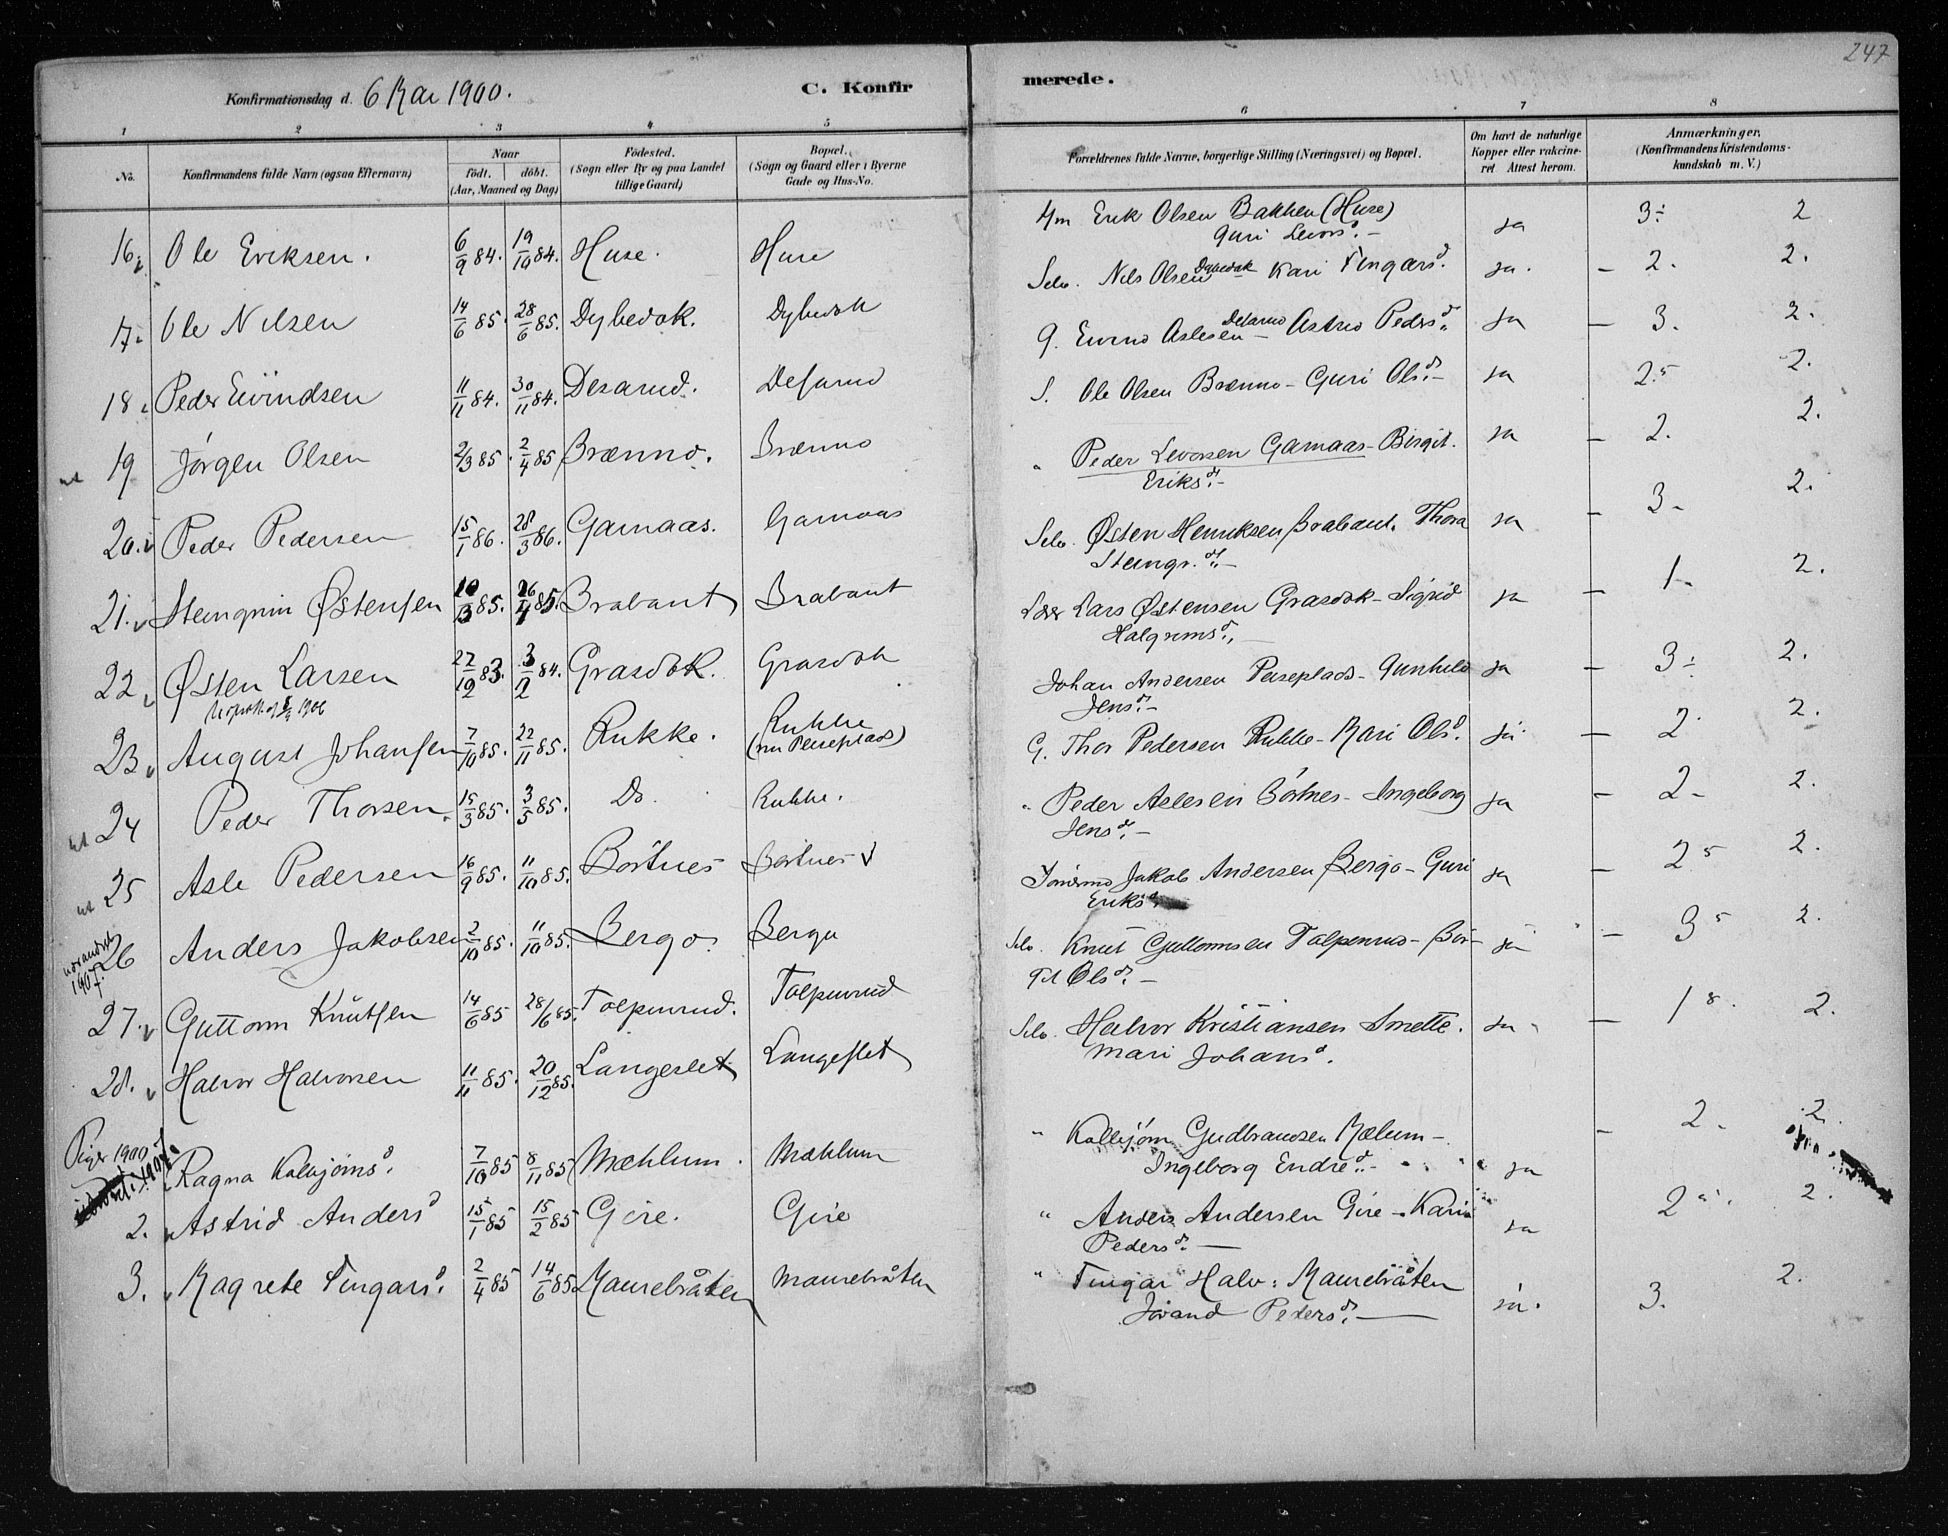 247
Konfirmationsdag d. 6 Mai 1900. C. Konfirmerede.
1 2 3 4 5 6 7 8
No. Konfirmandens fulde Navn (ogsaa Efternavn) Naar födt. döbt. (Aar, Maaned og Dag) Födested. (Sogn eller By og paa Landet tillige Gaard) Bopæl. (Sogn og Gaard eller i Byerne Gade og Hus-No. Forældrenes fulde Navne, borgerlige Stilling (Næringsvei) og Bopæl. Om havt de naturlige Kopper eller vakcineret Attest herom. Anmærkninger. (Konfirmandens Kristendomskundskab m. V.)
16. Ole Eriksen. 6/9 84. 19/10 84. Huse. Huse Erik Olsen Bakken (Huse) Guri Levorsd. – ja 3÷ 2
17. Ole Nilsen 14/6 85. 28/6 85. Dybedok. Dybedok Selv. Nils Olsen Dybedok Kari Fingarsd. ja. – 2. 2.
18. Peder Eivindsen 11/11 84. 30/11 84. Desarud. Desarud G. Eivind Aslesen Desarud – Astrid Pedersd. ja – 3. 2.
19 Jörgen Olsen 2/3 85. 2/4 85 Brænno. Brænno S. Ole Olsen Brænno – Guri Olsd. – ja 2.5 2.
20. Peder Pedersen 15/1 86. 28/3 86. Garnaas. Garnaas " Peder Levorsen Garnaas – Birgit Eriksd. – ja – 2. 2.
21. Steingrim Østensen 10/3 85. 26/4 85. Brabant Brabant Selv. Østen Henriksen Brabant. Thora Steingr.d. – ja – 3. 2.
22. Østen Larsen 27/12 83. 3/2 84. Grasdok. Grasdok Lars Østensen Grasdok – Sigrid Halgrimsd. – ja – 1. 2.
1906
23 August Johansen 7/10 85. 22/11 85. Rukke. Rukke (nu Perseplads) Johan Andersen Perseplads – Gunhild Jensd. – ja – 3÷ 2.
ut 24 Peder Thorsen. 15/3 85. 3/5 85. Do. Rukke. G. Thor Pedersen Rukke – Kari Olsd. ja – 2. 2.
ut 25 Asle Pedersen 16/9 85. 11/10 85. Börtnes Börtnes " Peder Aslesen Börtnes – Ingeborg Jensd. – ja – 2 – 2.
1907. 26 Anders Jakobsen 2/10 85. 11/10 85. Bergo. Bergo Jakob Andersen Bergo – Guri Eriksd. ja – 2 5 2.
27. Guttorm Knutsen 14/6 85 28/6 85. Tolpinrud. Tolpinrud Selv. Knut Guttormsen Tolpinrud – Bör- Olsd. – ja – 3 5 2.
28. Halvor Halvorsen 11/11 85. 20/12 85. Langeslet Langeslet Selv. Halvor Kristiansen Smette. Mari Johansd. ja – 1 8. 2.
Piger 1900
Ragna Kolbjörnsd. 7/10 85 8/11 85 Mæhlum. Mæhlum " Kolbjörn Gudbrandsen Mælum – Ingeborg Endred. – ja – 2. 2.
2. Astrid Andersd 15/1 85 15/2 85 Gire. Gire " Anders Andersen Gire – Kari Pedersd. – ja 2 2.
3. Margrete Fingarsd. 2/4 85 14/6 85 Maurebråten Maurebråten " Fingar Halv: Maurebråten Jörand Pedersd. – ja. 3. 2.